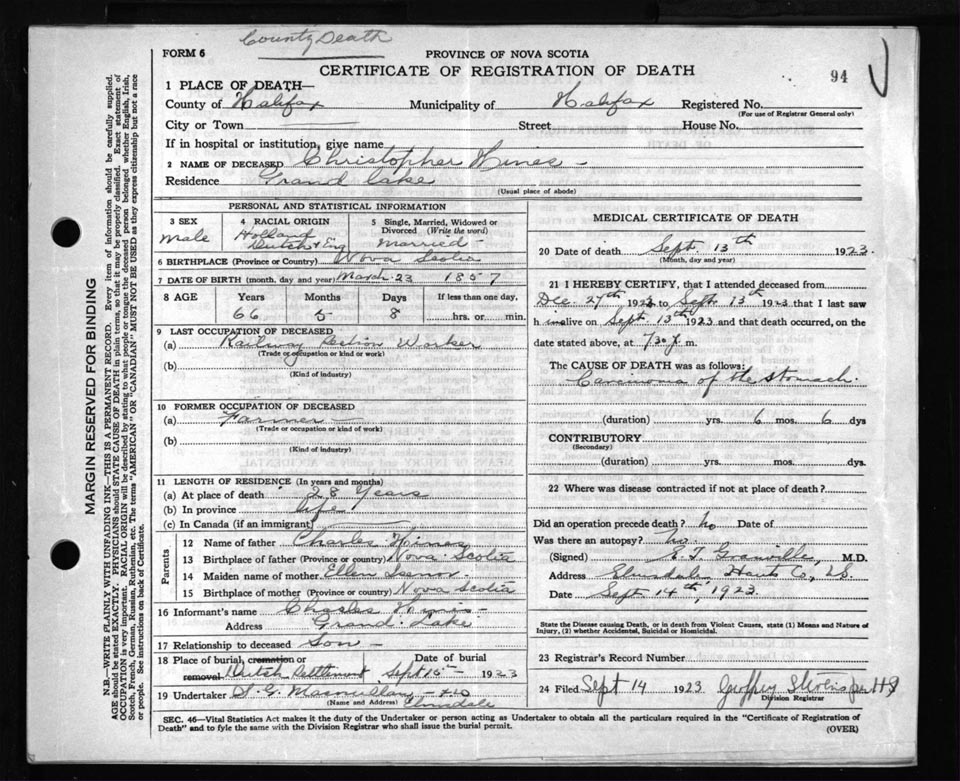 County Death
FORM 6
PROVINCE OF NOVA SCOTIA
CERTIFICATE OF REGISTRATION OF DEATH
94
1 PLACE OF DEATH—
County of Halifax Municipality of Halifax Registered No.
(For use of Registrar General only)
City or Town Street House No.
If in hospital or institution, give name
2 NAME OF DECEASED Christopher Hines -
Residence Grand Lake
(Usual place of abode)
PERSONAL AND STATISTICAL INFORMATION
3 SEX
male
4 RACIAL ORIGIN
Holland
Dutch & Eng
5 Single, Married, Widowed or Divorced (Write the word)
Married -
6 BIRTHPLACE (Province or Country) Nova Scotia
7 DATE OF BIRTH (month, day and year) March 23 1857
8 AGE Years Months Days If less than one day,
66 5 8 hrs. or min.
9 LAST OCCUPATION OF DECEASED
(a) Railway Section Worker
(Trade or occupation or kind or work)
(b)
(Kind of industry)
10 FORMER OCCUPATION OF DECEASED
(a) Farmer -
(Trade or occupation or kind or work)
(b)
(Kind of industry)
11 LENGTH OF RESIDENCE (In years and months)
(a) At place of death 28 Years
(b) In province life
(c) In Canada (if an immigrant)
Parents
12 Name of father Charles Hines
13 Birthplace of father (Province or Country) Nova Scotia
14 Maiden name of mother Ellen Isenor
15 Birthplace of mother (Province or Country) Nova Scotia
16 Informant's name Charles
Address Grand Lake
17 Relationship to deceased Son -
18 Place of burial, cremation or removal Dutch Settlement
Date of burial Sept 15 - 1923
19 Undertaker
(Name and Address) Elmsdale
MEDICAL CERTIFICATE OF DEATH
20 Date of death Sept. 13th 1923.
(Month, day and year)
21 I HEREBY CERTIFY, that I attended deceased from
Dec. 27th 1922 to Sept. 13th 1923 that I last saw
h im alive on Sept. 13th 1923 and that death occurred, on the
date stated above, at 7 30 m.
The CAUSE OF DEATH was as follows:
Carcinoma of the stomach.
(duration) yrs. 6 mos. 6 dys
CONTRIBUTORY
(Secondary)
(duration) yrs. mos. dys.
22 Where was disease contracted if not at place of death?
Did an operation precede death? no Date of
Was there an autopsy? no.
(Signed) E. T. Granville, M.D.
Address Elmsdale, Hants Co., N.S.
Date Sept 14th, 1923.
State the Disease causing Death, or in death from Violent Causes, state (1) Means and Nature of Injury, (2) whether Accidental, Suicidal or Homicidal.
23 Registrar's Record Number
24 Filed Sept 14 1923 Geoffrey
Division Registrar
SEC. 46—Vital Statistics Act makes it the duty of the Undertaker or person acting as Undertaker to obtain all the particulars required in the "Certificate of Registration of
Death" and to fyle the same with the Division Registrar who shall issue the burial permit.
(OVER)
MARGIN RESERVED FOR BINDING
N.B.—WRITE PLAINLY WITH UNFADING INK—THIS IS A PERMANENT RECORD. Every item of information should be carefully supplied.
AGE should be stated EXACTLY. PHYSICIANS should STATE CAUSE OF DEATH in plain terms, so that it may be properly classified. Exact statement of
OCCUPATION is very important. RACIAL ORIGIN will be described by stating to what people or tongue the deceased person belonged whether English, Irish,
Scotch, French, German, Russian, Ruthenian, etc. The terms "AMERICAN" or "CANADIAN" MUST NOT BE USED as they express citizenship but not a race
or people. See instructions on back of Certificate.